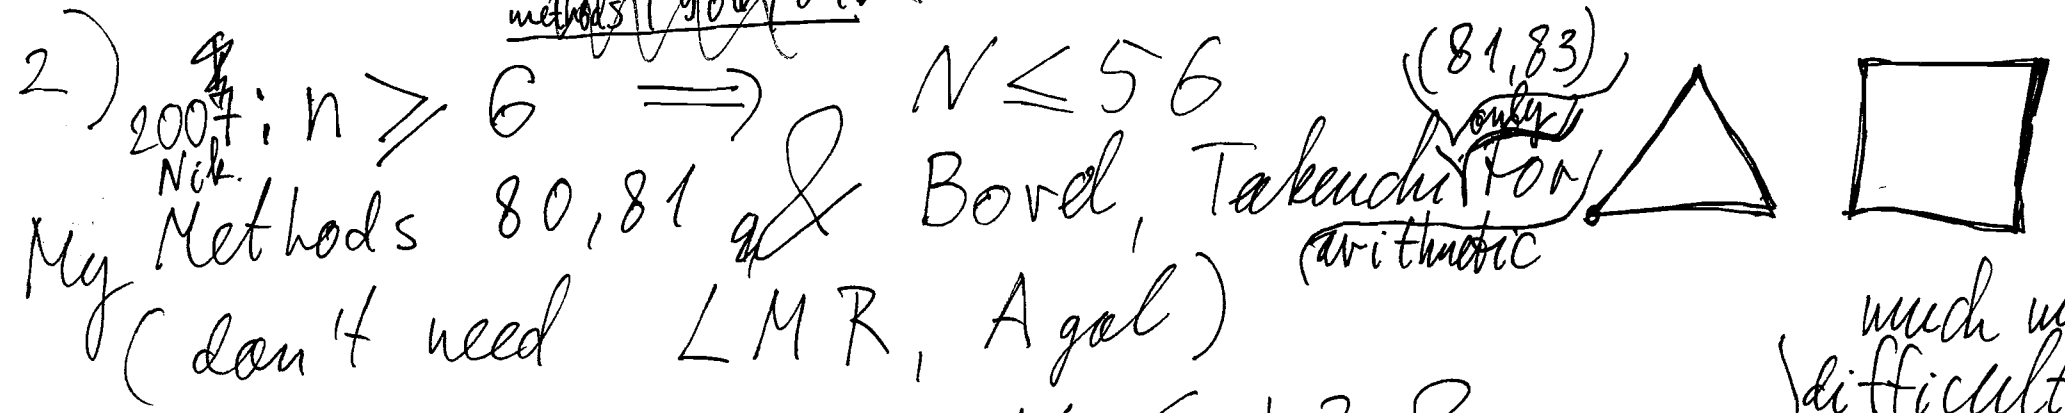 methods
2) 2007 : n ⩾ 6 ⟹ N ≤ 56 (81,83)
Nik. only
My Methods 80,81 & Borel, Takeuchi for
arithmetic
(don't need LMR, Agol)
much
difficult